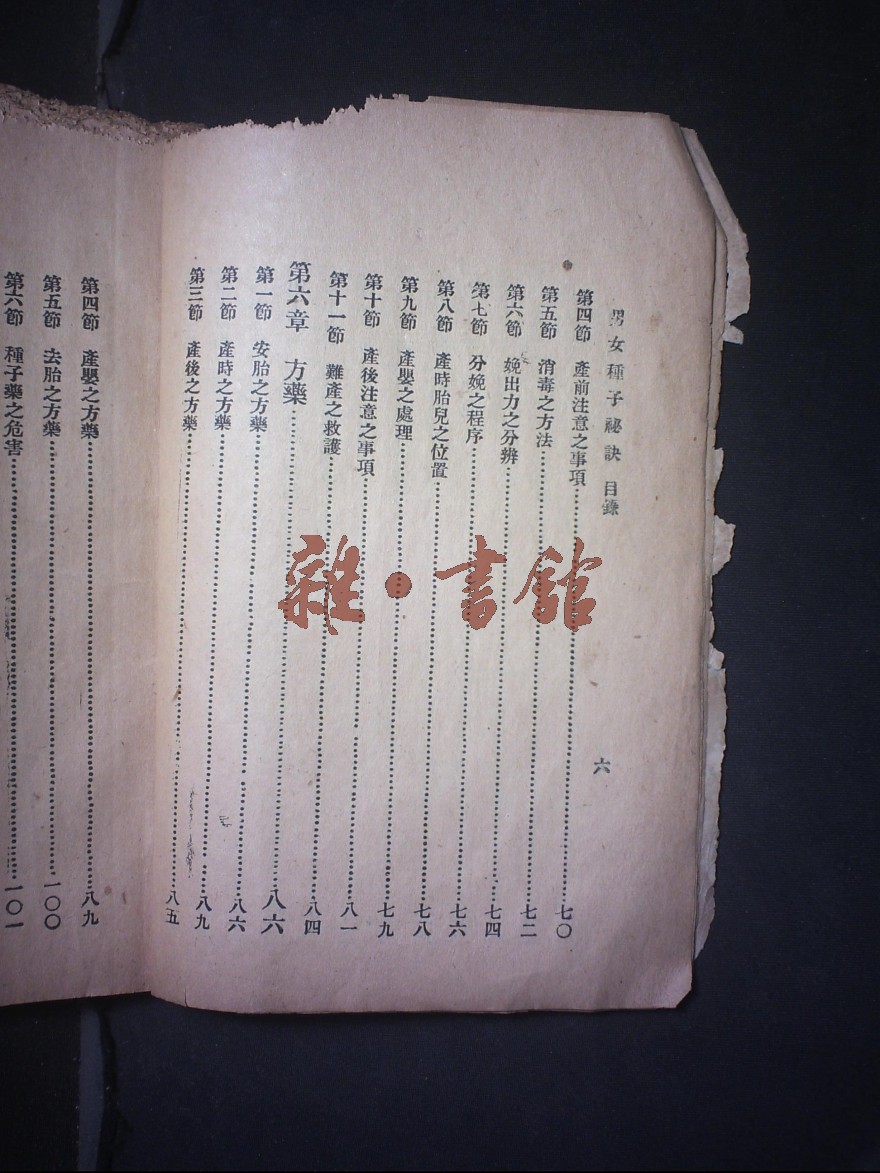 男女種子祕訣 目錄 六
第四節 產前注意之事項……七〇
第五節 消毒之方法……七二
第六節 娩出力之分辨……七四
第七節 分娩之程序……七六
第八節 產時胎兒之位置……七八
第九節 產嬰之處理……七九
第十節 產後注意之事項……八一
第十一節 難產之救護……八四
第六章 方藥……八六
第一節 安胎之方藥……八六
第二節 產時之方藥……八九
第三節 產後之方藥……八五
第四節 產嬰之方藥……八九
第五節 去胎之方藥……一〇〇
第六節 種子藥之危害……一〇一
雜·書館